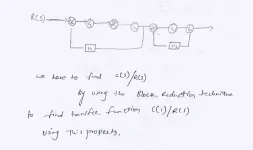 R(s)
H1
H2
we have to find c(s)/R(s)
By using the Block Reduction technique
to find transfer function C(s)/R(s)
using this property.